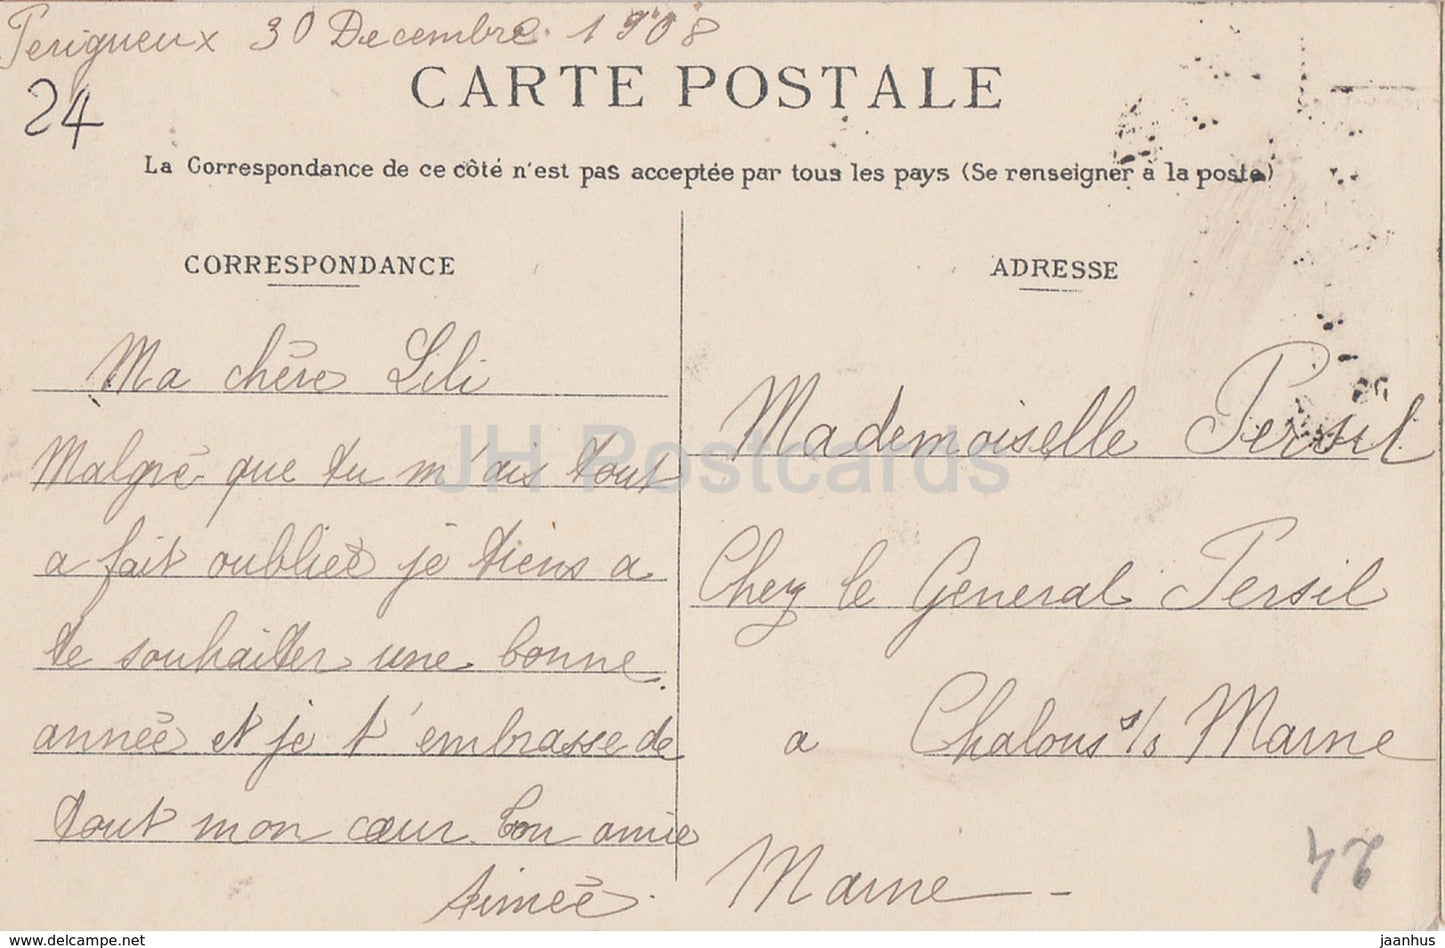 Perigueux 30 Decembre 1908
24
CARTE POSTALE
La Correspondance de ce côté n'est pas acceptée par tous les pays (Se renseigner à la poste)
CORRESPONDANCE
Ma chère Lili
Malgré que tu m'ais tout
a fait oubliée je tiens a
te souhaiter une bonne
année et je t'embrasse de
tout mon cœur. Ton amie
Aimée.
ADRESSE
Mademoiselle Persil
Chez le General Persil
a Chalons s/s Marne
Marne
24
JH Postcards
jaanhus-jhw.com
jaanhus